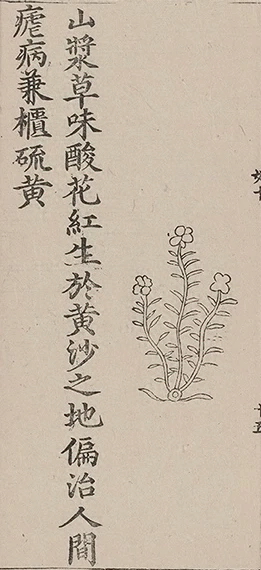 山漿草味酸花紅生於黄沙之地偏治人間
瘧病兼櫃硫黄